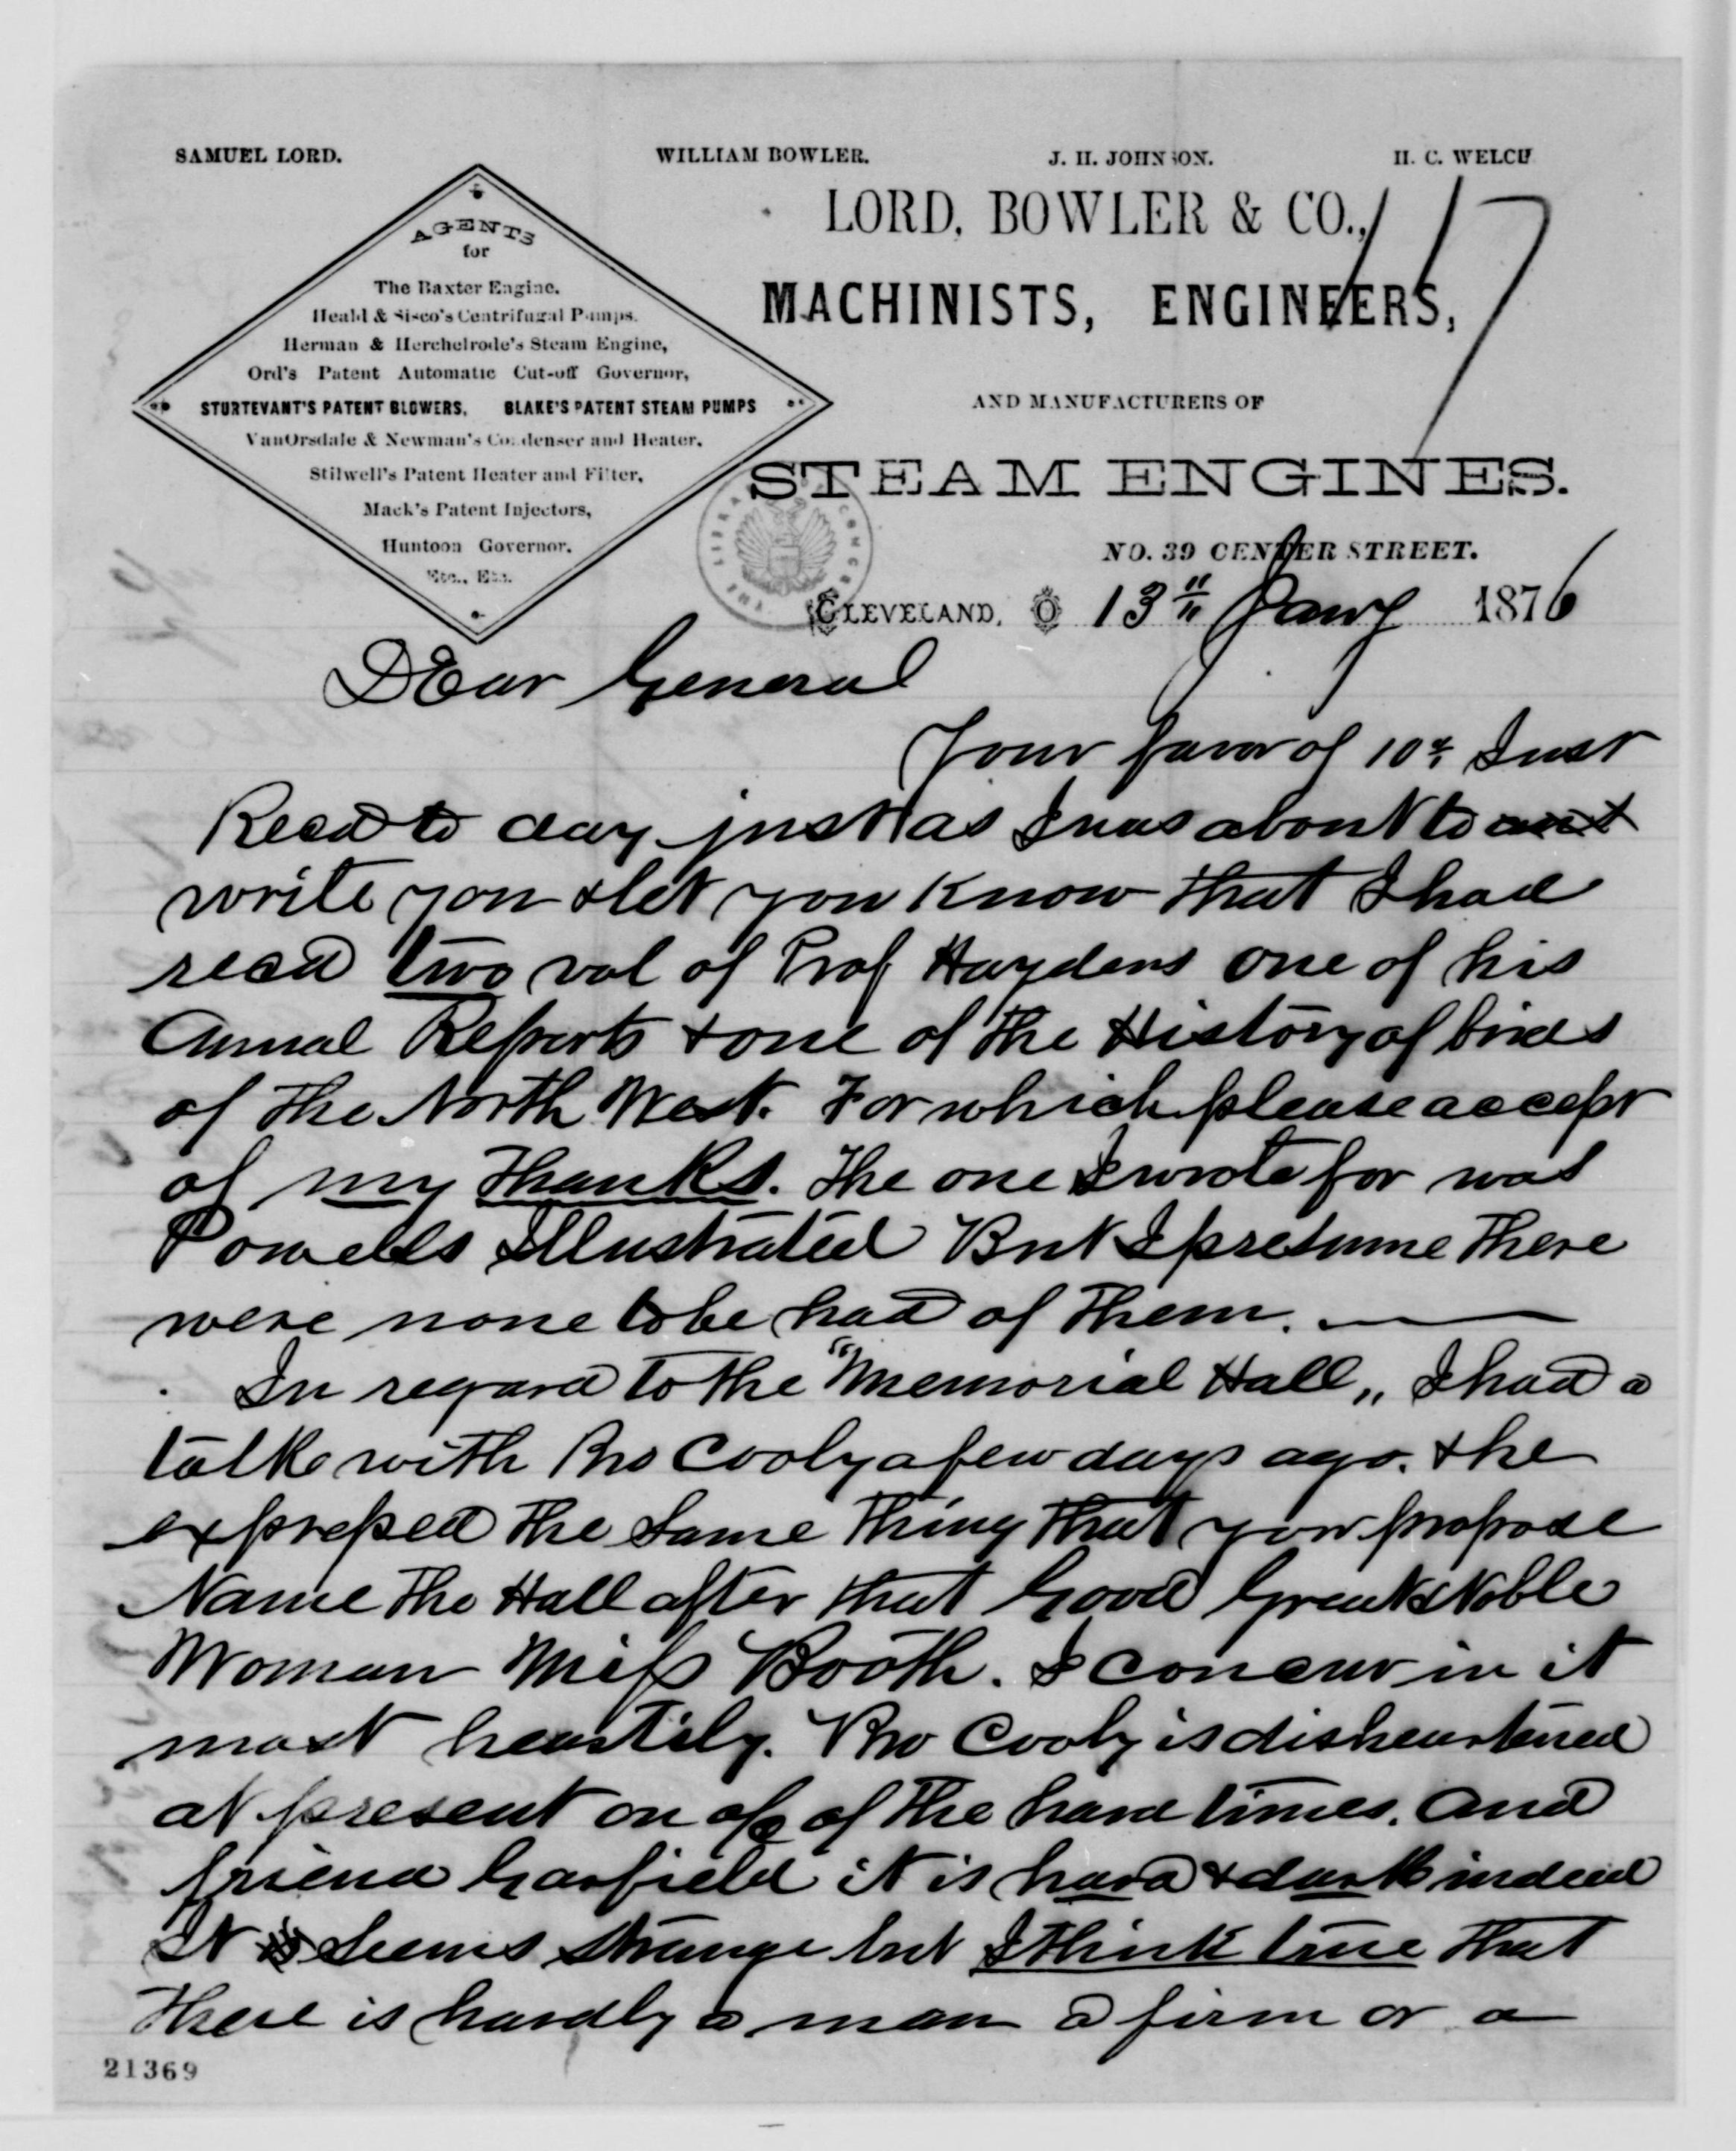 SAMUEL LORD. WILLIAM BOWLER. J. H. JOHNSON. H. C. WELCH
AGENTS
for
The Baxter Engine.
Heald & Sisco's Centrifugal Pumps.
Herman & Herchelrode's Steam Engine,
Ord's Patent Automatic Cut-off Governor,
STURTEVANT'S PATENT BLOWERS, BLAKE'S PATENT STEAM PUMPS
VanOrsdale & Newman's Condenser and Heater.
Stilwell's Patent Heater and Filter,
Mack's Patent Injectors,
Huntoon Governor.
Etc., Etc.
LORD, BOWLER & CO.,
MACHINISTS, ENGINEERS,
AND MANUFACTURERS OF
STEAM ENGINES.
THE LIBRARY OF CONGRESS
NO. 39 CENTER STREET.
CLEVELAND, O 13th Jany 1876
117
Dear General
Your favor of 10th Inst
Recd to day just as I was about to
write you & let you know that I had
recd two vol of Prof Haydens one of his
Annual Reports & one of the History of birds
of the North West. For which please accept
of my thanks. The one I wrote for was
Powells Illustrated But I presume there
were none to be had of them.
In regard to the "Memorial Hall" I had a
talk with Bro Cooly a few days ago. & he
expressed the same thing that you propose
Name the Hall after that Good Great & Noble
Woman Miss Booth. I concur in it
most heartily. Bro Cooly is disheartened
at present on a/c of the hard times. And
friend Garfield it is hard & dark indeed
It seems strange but I think true that
there is hardly a man a firm or a
21369